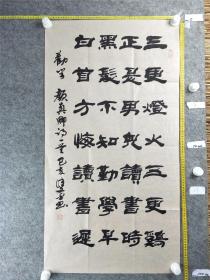 三更燈火五更鷄
正是男兒讀書時
黑髮不知勤學早
白首方悔讀書遲
勸學 顏真卿詩 己亥 書